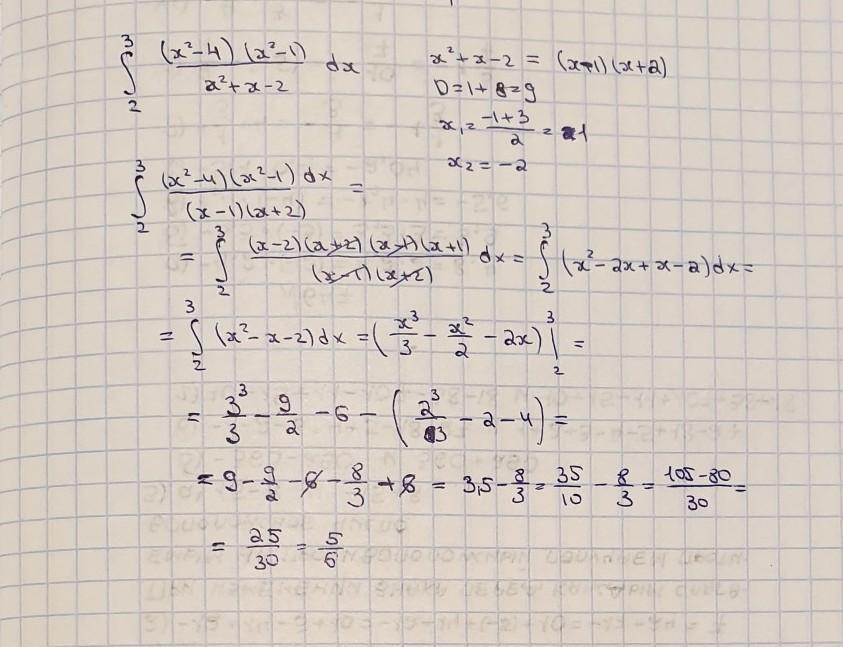 ∫₂³ (x²-4)(x²-1) / (x²+x-2) dx
x²+x-2 = (x-1)(x+2)
D=1+8=9
x₁=(-1+3)/2=1
x₂=-2
∫₂³ (x²-4)(x²-1)dx / ((x-1)(x+2)) =
= ∫₂³ (x-2)(x+2)(x-1)(x+1) / ((x-1)(x+2)) dx = ∫₂³ (x²-2x+x-2)dx=
= ∫₂³ (x²-x-2)dx =(x³/3 - x²/2 - 2x)|₂³ =
= 3³/3 - 9/2 - 6 - (2³/3 - 2 - 4)=
= 9 - 9/2 - 6 - 8/3 + 6 = 3,5 - 8/3 = 35/10 - 8/3 = (105-80)/30 =
= 25/30 = 5/6